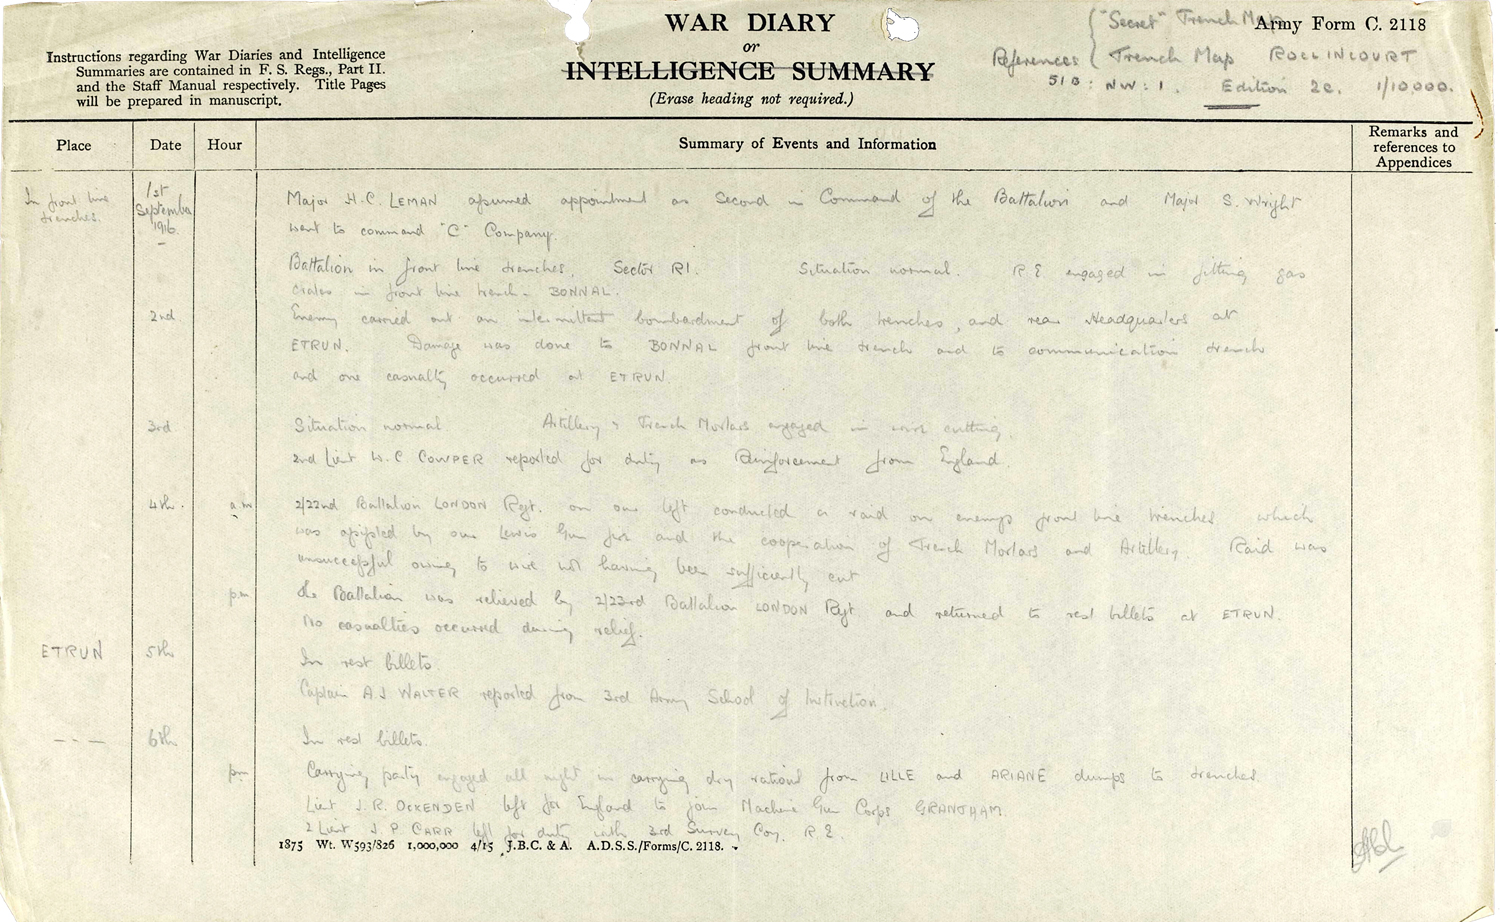 WAR DIARY
or
INTELLIGENCE SUMMARY
(Erase heading not required.)
Instructions regarding War Diaries and Intelligence
Summaries are contained in F. S. Regs., Part II.
and the Staff Manual respectively. Title Pages
will be prepared in manuscript.
Army Form C. 2118
References { "Secret" Trench Map
Trench Map ROCLINCOURT
51B : NW : 1. Edition 2C. 1/10,000.
Place Date Hour Summary of Events and Information Remarks and references to Appendices
In front line trenches. 1st September 1916. Major H.C. LEMAN assumed appointment as Second in Command of the Battalion and Major S. Wright
went to command "C" Company.
Battalion in front line trenches. Sector R1. Situation normal. R E engaged in fitting gas
crates in front line trench - BONNAL.
2nd. Enemy carried out an intermittent bombardment of both trenches, and rear Headquarters at
ETRUN. Damage was done to BONNAL front line trench and to communication trench
and one casualty occurred at ETRUN
3rd Situation normal Artillery & Trench Mortars engaged in wire cutting.
2nd Lieut W. C COWPER reported for duty as Reinforcement from England.
4th. a m 2/22nd Battalion LONDON Regt. on our left conducted a raid on enemys front line trenches which
was assisted by our Lewis Gun fire and the cooperation of Trench Mortars and Artillery. Raid was
unsuccessful owing to wire not having been sufficiently cut
p.m The Battalion was relieved by 2/23rd Battalion LONDON Regt. and returned to rest billets at ETRUN.
No casualties occurred during relief.
ETRUN 5th In rest billets.
Captain A J WALTER reported from 3rd Army School of Instruction.
- - - 6th In rest billets.
pm Carrying party engaged all night in carrying dry rations from LILLE and ARIANE dumps to trenches
Lieut J. R. OCKENDEN left for England to join Machine Gun Corps GRANTHAM.
2 Lieut J. P. CARR left for duty with 3rd Survey Coy. R.E.
1875 Wt. W593/826 1,000,000 4/15 J.B.C. & A. A.D.S.S./Forms/C. 2118.